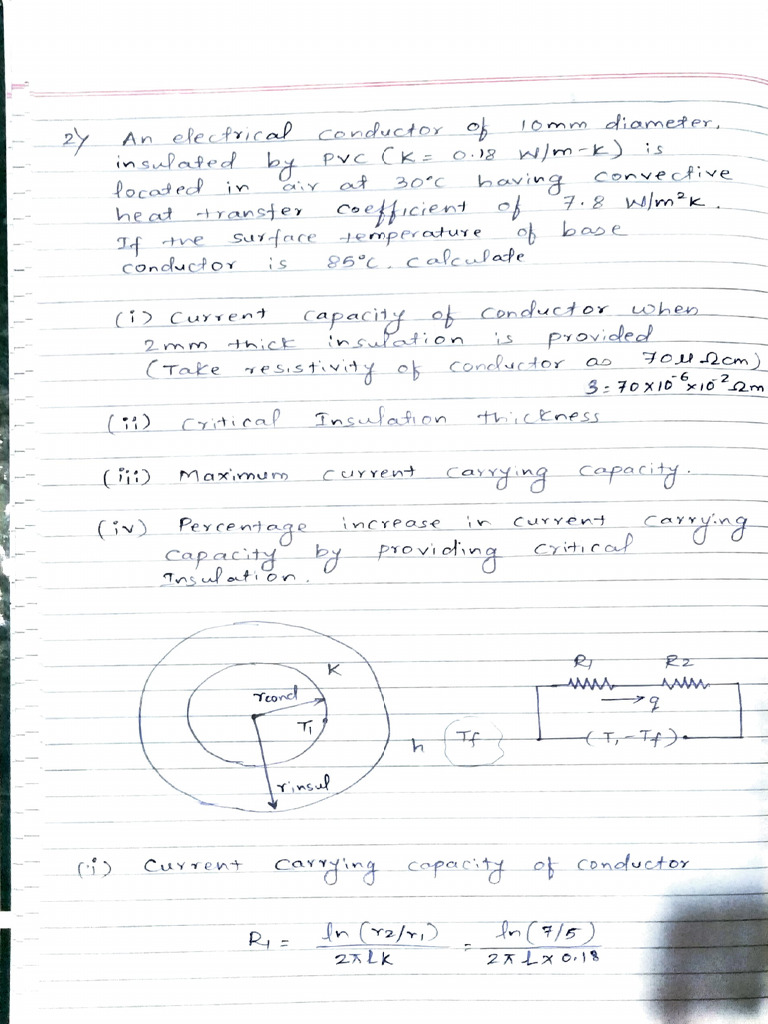 2) An electrical conductor of 10mm diameter,
insulated by PVC (K = 0.18 W/m-K) is
located in air at 30°C having convective
heat transfer coefficient of 7.8 W/m²K.
If the surface temperature of base
conductor is 85°C. calculate
(i) Current capacity of conductor when
2mm thick insulation is provided
(Take resistivity of conductor as 70μΩcm)
3 = 70×10⁻⁶×10⁻²Ωm
(ii) Critical Insulation thickness
(iii) Maximum current carrying capacity.
(iv) Percentage increase in current carrying
capacity by providing critical
Insulation.
K
rcond
T₁
rinsul
h Tf
R₁ R2
→ q
(T₁-Tf)
(i) Current carrying capacity of conductor
R₁ = ln(r2/r₁) / 2πLK = ln(7/5) / 2πL×0.18